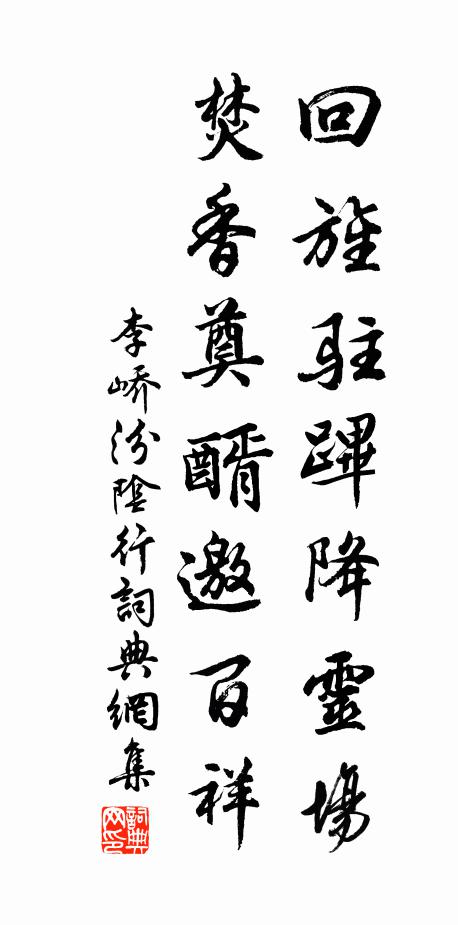 回旌駐蹕降靈場
焚香奠醑邀百祥
李嶠汾陰行詞典網集
詞典
网印